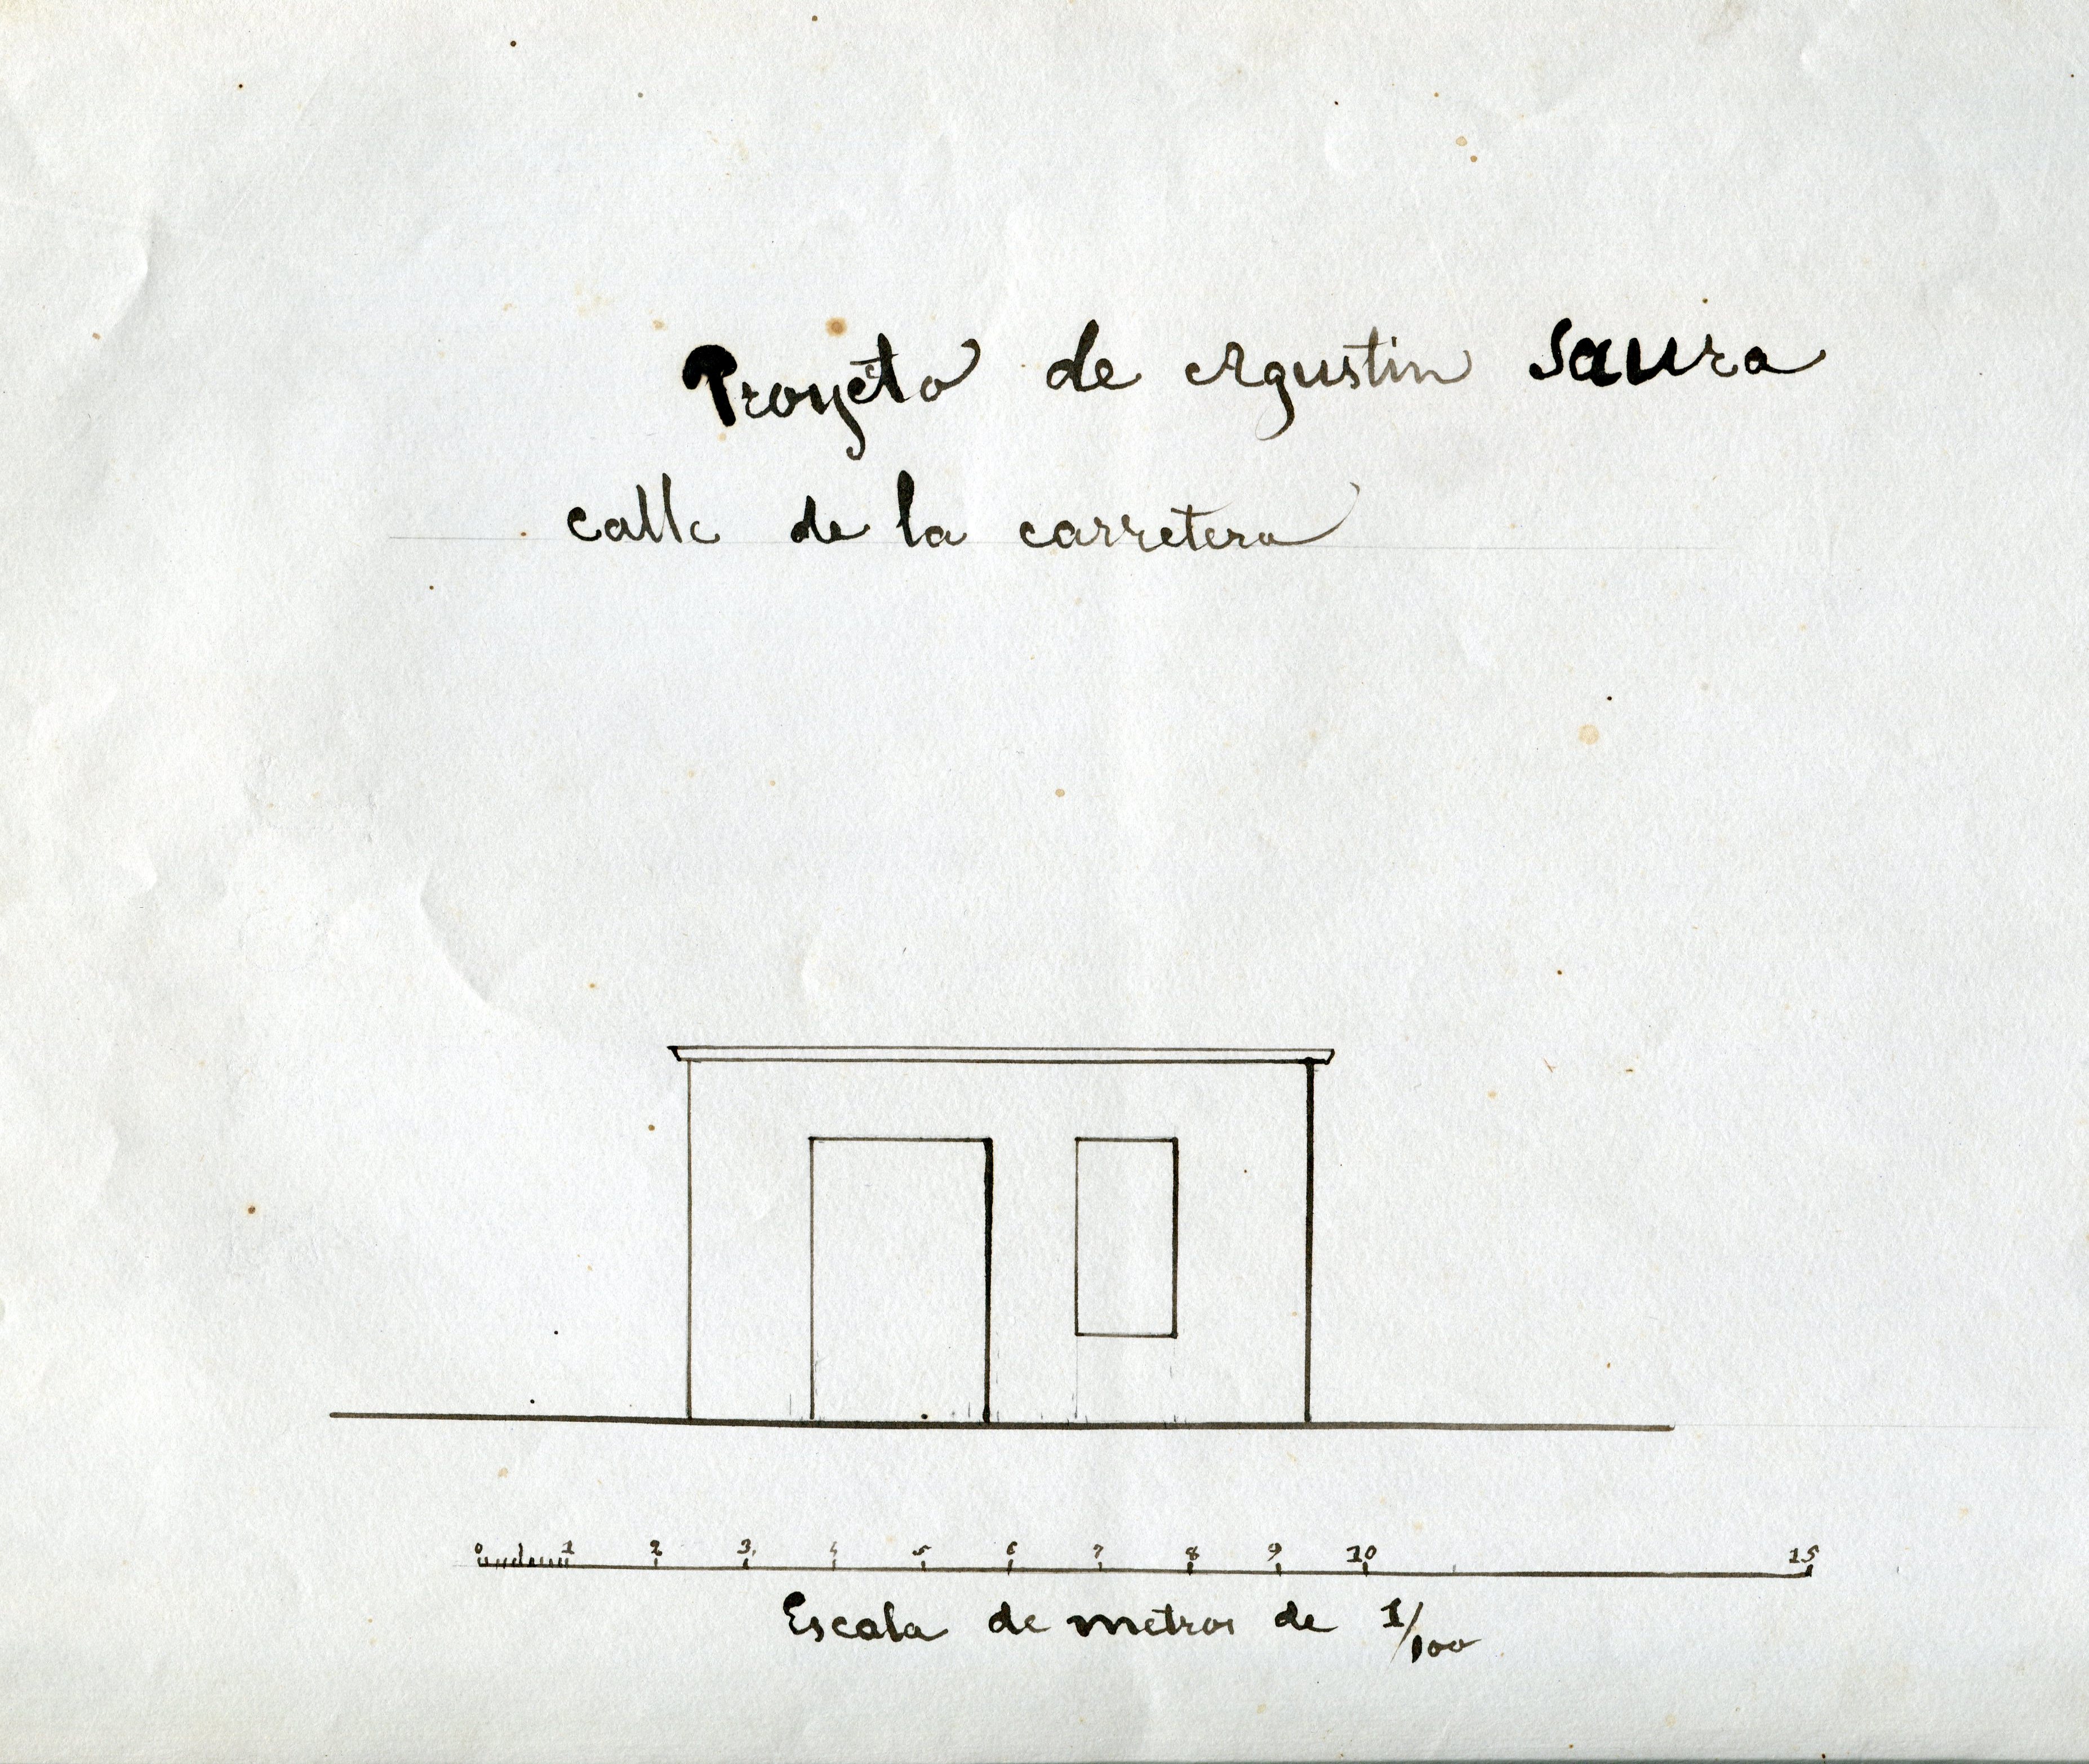 Proyeto de Agustin Saura
calle de la carretera
0 1 2 3 4 5 6 7 8 9 10 15
Escala de metros de 1/100